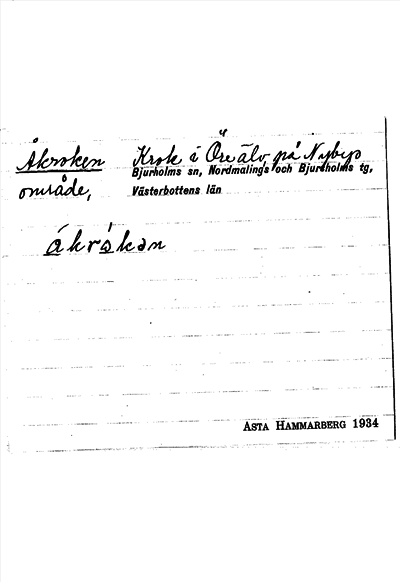 Åkroken Krok i Öreälv på Nybyp
Bjurholms sn, Nordmalings och Bjurholms tg,
område, Västerbottens län
ákrȧkən
ASTA HAMMARBERG 1934